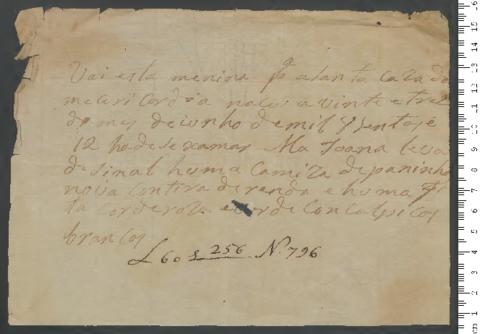 Vai esta menina pª a Santa Caza da
mezericordia naceo a vinte e tres
do mes de iunho de mil 8 sentos é
12 hade se xamar Ma Joana leva
de sinal huma Camiza de paninho
nova Com tira de renda e huma fi
ta Cor de roza e cor de
brancos
L 60 f 256 N. 796